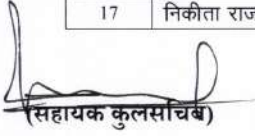 17 निकीता राज
(सहायक कुलसचिव)